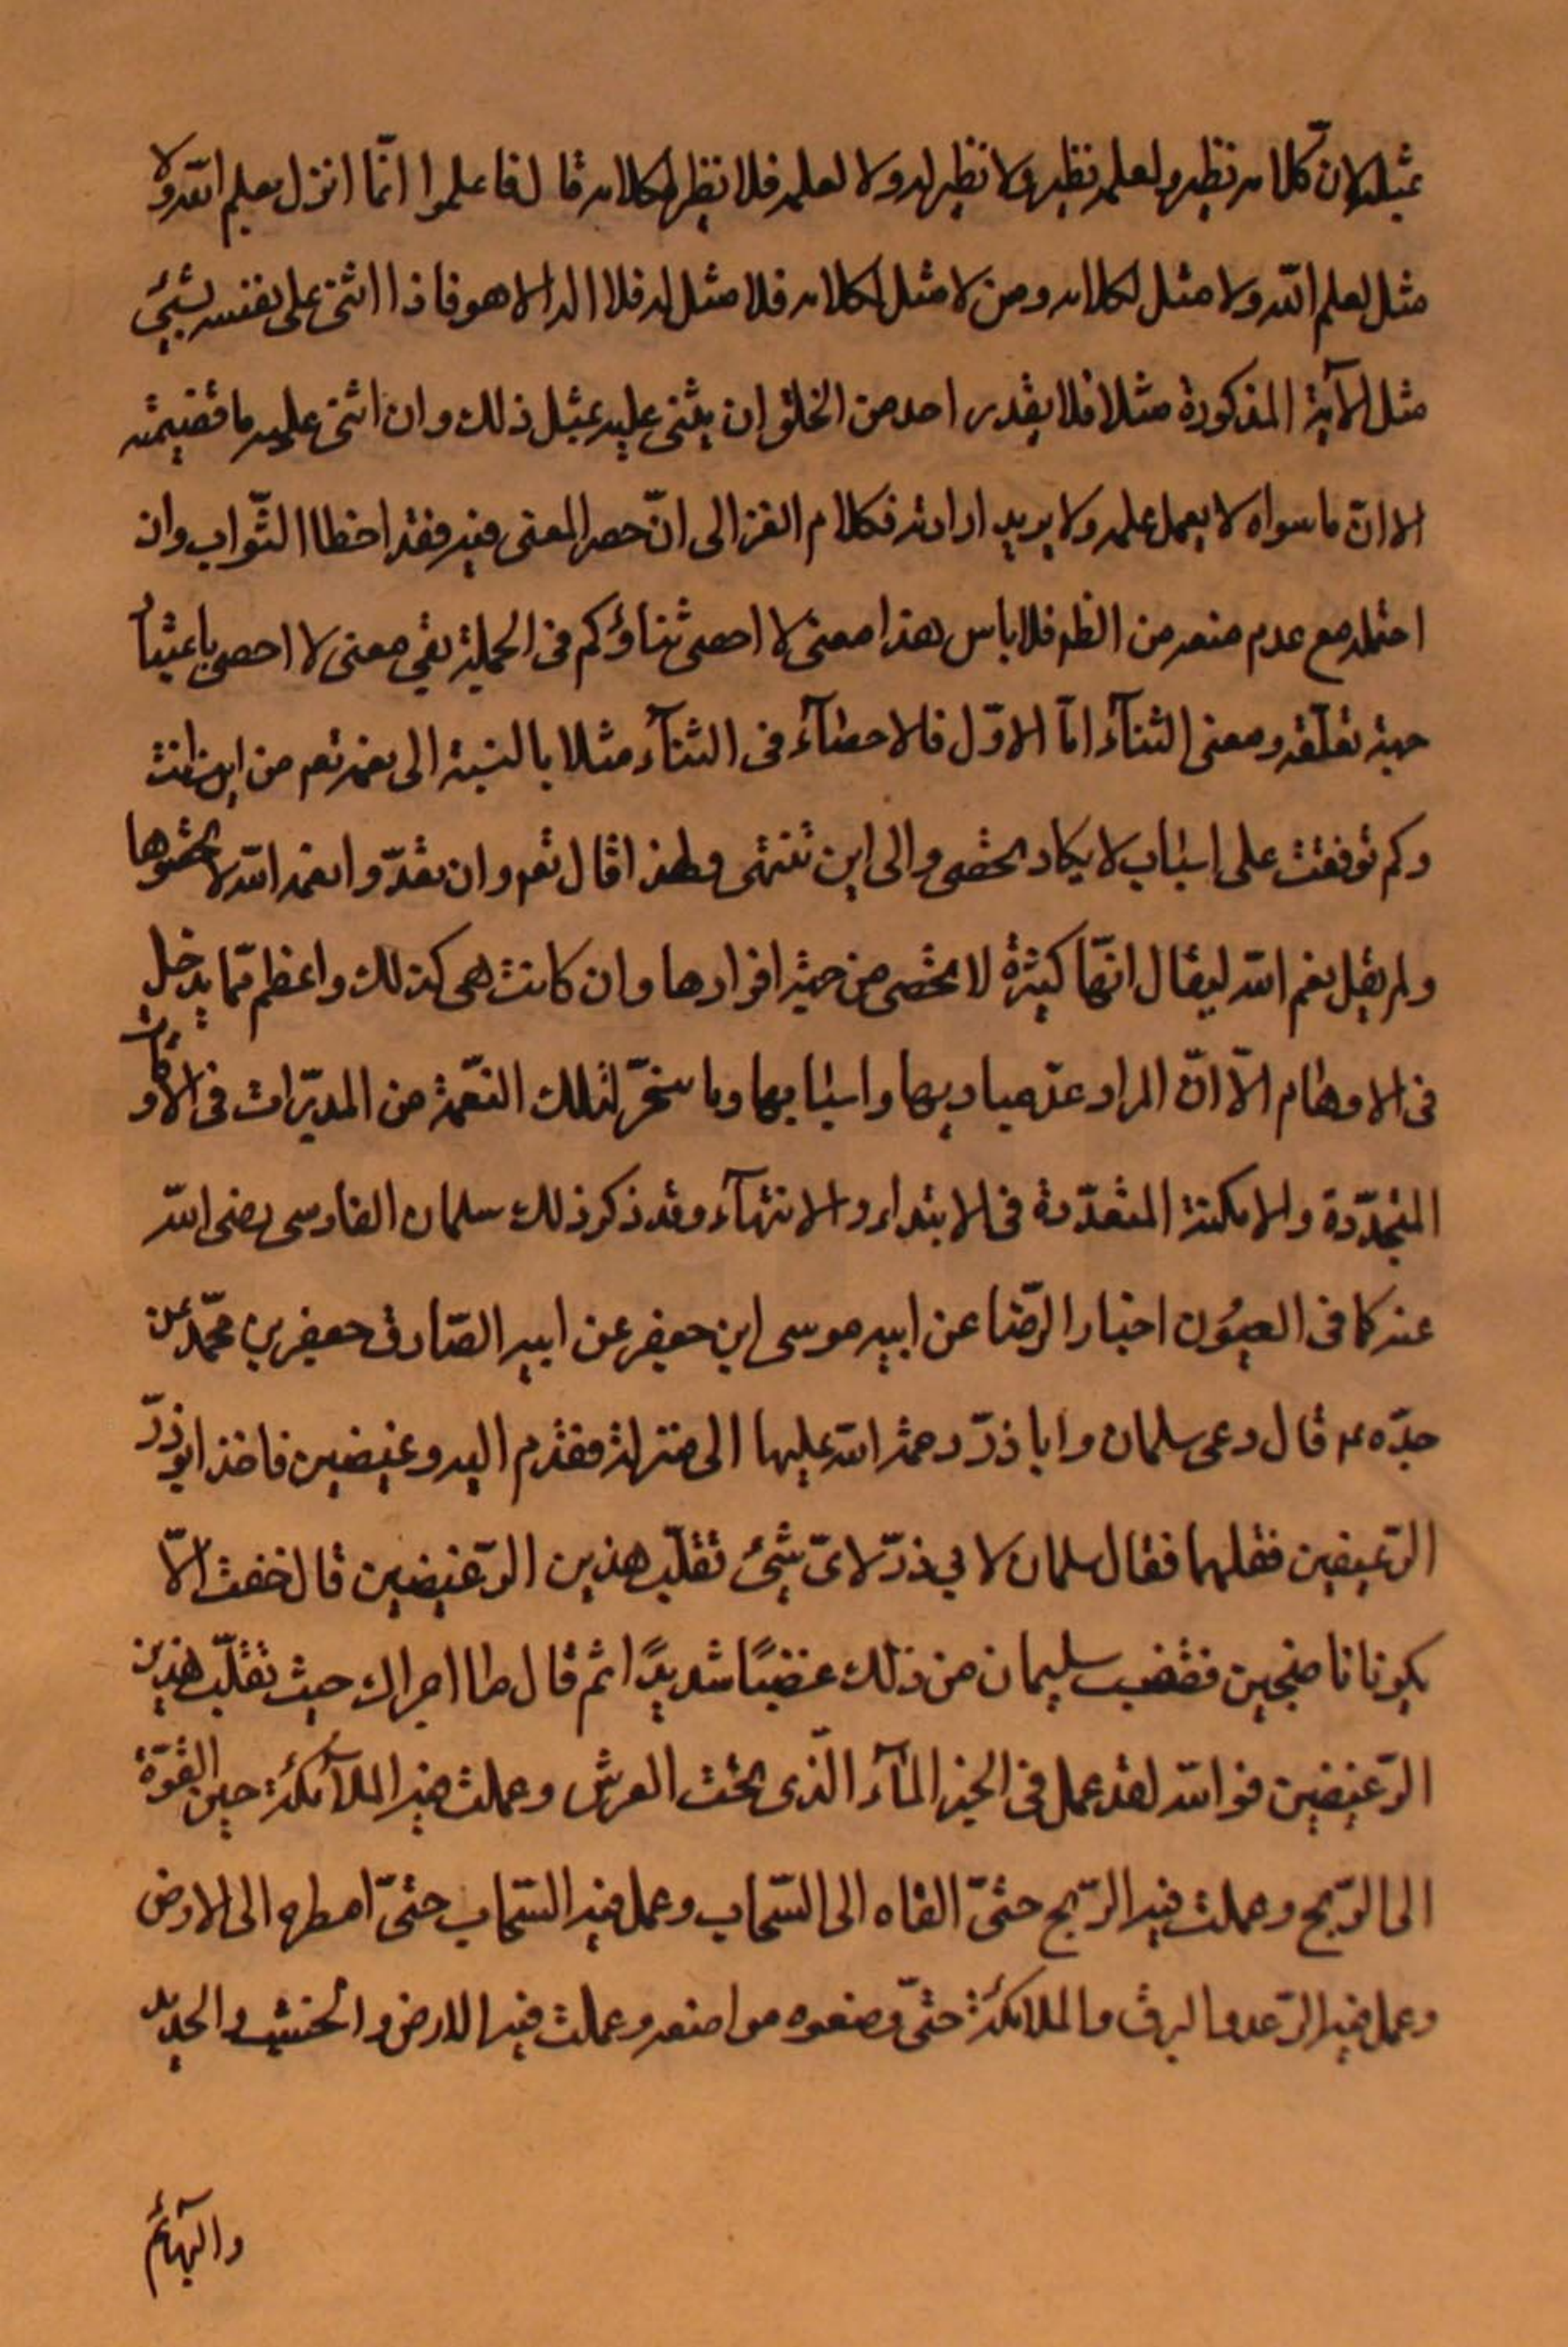 بمثله لان كلامه نظير لعلمه نظير ولا نظير له ولا لعلمه فلا نظير لكلامه قال فاعلموا انّما انزل بعلم الله ولا
مثل لعلم الله ولا مثل لكلامه ومن لا مثل لكلامه فلا مثل له فلا اله الا هو فاذا اثنى على نفسه بشيئ
مثل الآية المذكورة مثلا فلا يقدر احد من الخلق ان يثنى عليه بمثل ذلك وان اثنى عليه
الا انّ ما سواه لا يعمل علمه ولا يريد ارادته فكلام الغزالى انّ حصر المعنى فيه فقد اخطا الثّواب وان
احتمله مع عدم منعه من الظم فلا باس هذا معنى لا احصى ثناؤكم فى الجملة بقي معنى لا احصى باعتبار
جهة تعلّقه ومعنى الثنآء امّا الاوّل فالاحصآء فى الثنآء مثلا بالنسبة الى نعمه تعم من اين انت
وكم توقفت على اسباب لا يكاد تحصى والى اين تنتهى ولهذا قال تعم وان تعدّوا نعمة الله لا تحصوها
ولم يقل نعم الله ليقال انّها كثيرة لا تحصى من حيث افرادها وان كانت هى كذلك واعظم ممّا يدخل
فى الاوهام الّا انّ المراد عدّ مباديها واسبابها وما سخّر لتلك النّعمة من المدبّرات فى الاوقات
المتجدّدة والامكنة المتعدّدة فى الابتداء والانتهآء وقد ذكر ذلك سلمان الفارسى رضى الله
عنه كما فى العيون اخبار الرّضا عن ابيه موسى ابن جعفر عن ابيه الصّادق جعفر بن محمّد عن
جدّه ع قال دعى سلمان وابا ذرّ رحمة الله عليهما الى منزله فقدم اليه رغيفين فاخذ ابو ذرّ
الرّغيفين فقلبهما فقال سلمان لابي ذرّ لاىّ شيئ تقلّب هذين الرّغيفين قال خفت الّا
يكونا ناضجين فغضب سليمان من ذلك غضبًا شديدًا ثم قال ما اجراك حيث تقلّب هذين
الرّغيفين فوالله لقد عمل فى الخبز المآء الّذى تحت العرش وعملت فيه الملآئكة حين القوّة
الى الرّيح وعملت فيه الرّيح حتىّ القاه الى السّحاب وعمل فيه السّحاب حتىّ امطره الى الارض
وعمل فيه الرّعد والبرق والملائكة حتىّ وضعوه مواضعه وعملت فيه الارض والخشب والحديد
والبهآئم